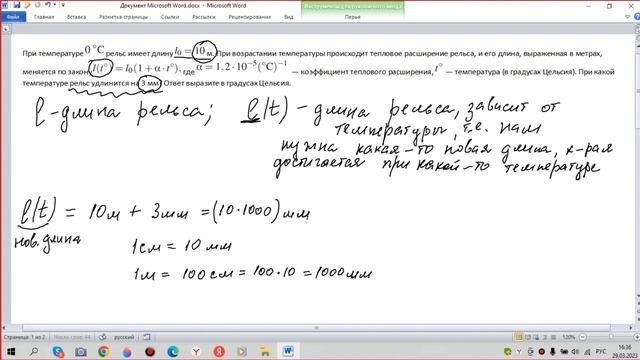 Документ Microsoft Word.docx - Microsoft Word
Инструменты для рукописного ввода
Перья
При температуре 0 °C рельс имеет длину l₀ = 10 м. При возрастании температуры происходит тепловое расширение рельса, и его длина, выраженная в метрах,
меняется по закону l(t°) = l₀(1 + α · t°), где α = 1,2 · 10⁻⁵(°C)⁻¹ — коэффициент теплового расширения, t° — температура (в градусах Цельсия). При какой
температуре рельс удлинится на 3 мм? Ответ выразите в градусах Цельсия.
l - длина рельса; l(t) - длина рельса, зависит от
температуры, т.е. нам
нужна какая-то новая длина, к-рая
достигается при какой-то температуре
l(t) = 10м + 3мм = (10·1000) мм
нов. длина
1см = 10 мм
1м = 100 см = 100·10 = 1000мм
Страница: 1 из 2
Число слов: 44
русский
120%
16:36
РУС
29.03.2023